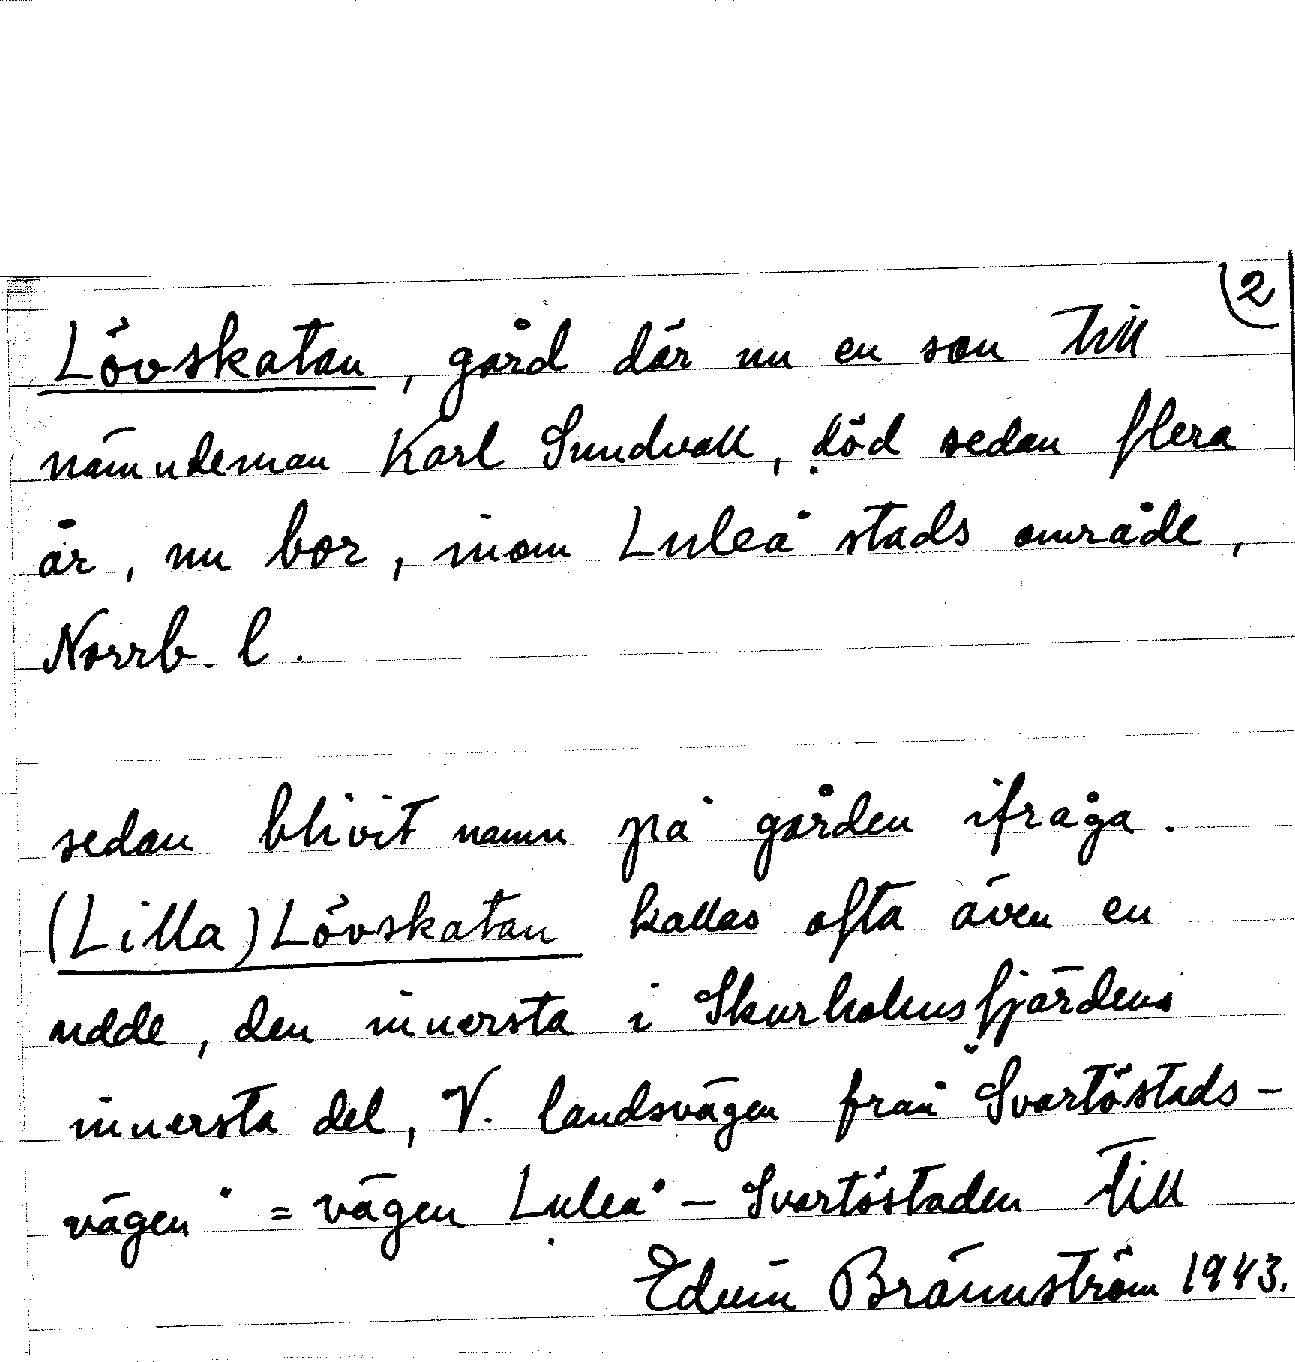 2
Lövskatan, gård där nu en son till
nämndeman Karl Sundvall, död sedan flera
år, nu bor, inom Luleå stads område,
Norrb. l.
sedan blivit namn på gården ifråga.
(Lilla) Lövskatan kallas ofta även en
udde, den innersta i Skurholmsfjärdens
innersta del, V. landsvägen från "Svartöstads-
vägen" = vägen Luleå - Svartöstaden till
Edvin Brännström 1943.